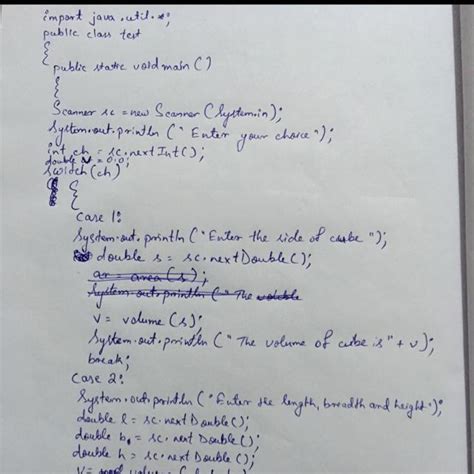 import java.util.*;
public class test
{
public static void main()
{
Scanner sc = new Scanner (System.in);
System.out.println (" Enter your choice");
int ch = sc.nextInt();
double v = 0.0;
switch (ch)
{
case 1:
System.out.println ("Enter the side of cube ");
double s = sc.nextDouble();
ar area(s);
System.out.println (" The
v = volume (s);
System.out.println (" The volume of cube is" + v);
break;
case 2:
System.out.println ("Enter the length, breadth and height");
double l = sc.next Double();
double b = sc.next Double();
double h = sc.next Double();